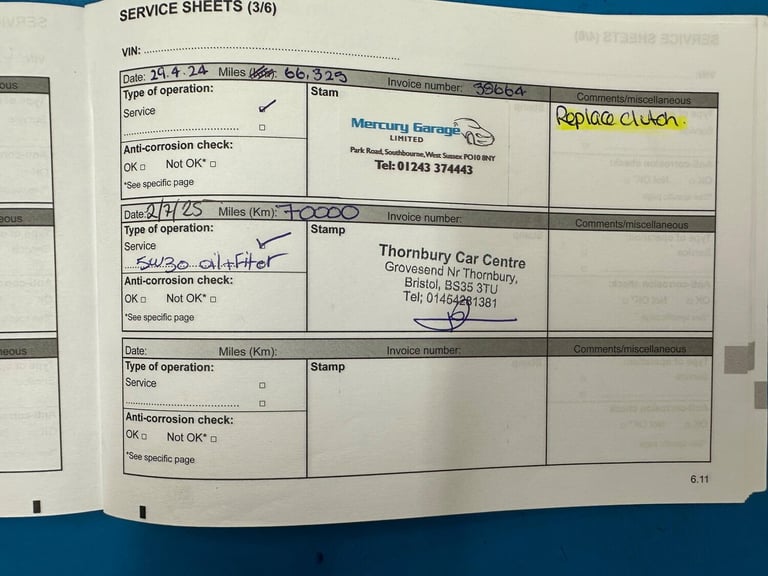 SERVICE SHEETS (3/6)
VIN:
Date: 29.4.24 Miles (Km): 66,325 Invoice number: 38664 Comments/miscellaneous
Type of operation:
Service ✓
Stam
Mercury Garage
LIMITED
Park Road, Southbourne, West Sussex PO10 8NY
Tel: 01243 374443
Replace clutch.
Anti-corrosion check:
OK □ Not OK* □
*See specific page
Date: 2/7/25 Miles (Km): 70000 Invoice number: Comments/miscellaneous
Type of operation:
Service ✓
5W30 oil+Filter
Stamp
Thornbury Car Centre
Grovesend Nr Thornbury,
Bristol, BS35 3TU
Tel; 01454281381
Anti-corrosion check:
OK □ Not OK* □
*See specific page
Date: Miles (Km): Invoice number: Comments/miscellaneous
Type of operation:
Service □
Stamp
Anti-corrosion check:
OK □ Not OK* □
*See specific page
6.11